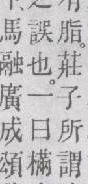 脂莊子所謂
誤也一曰樠
馬融廣成頌